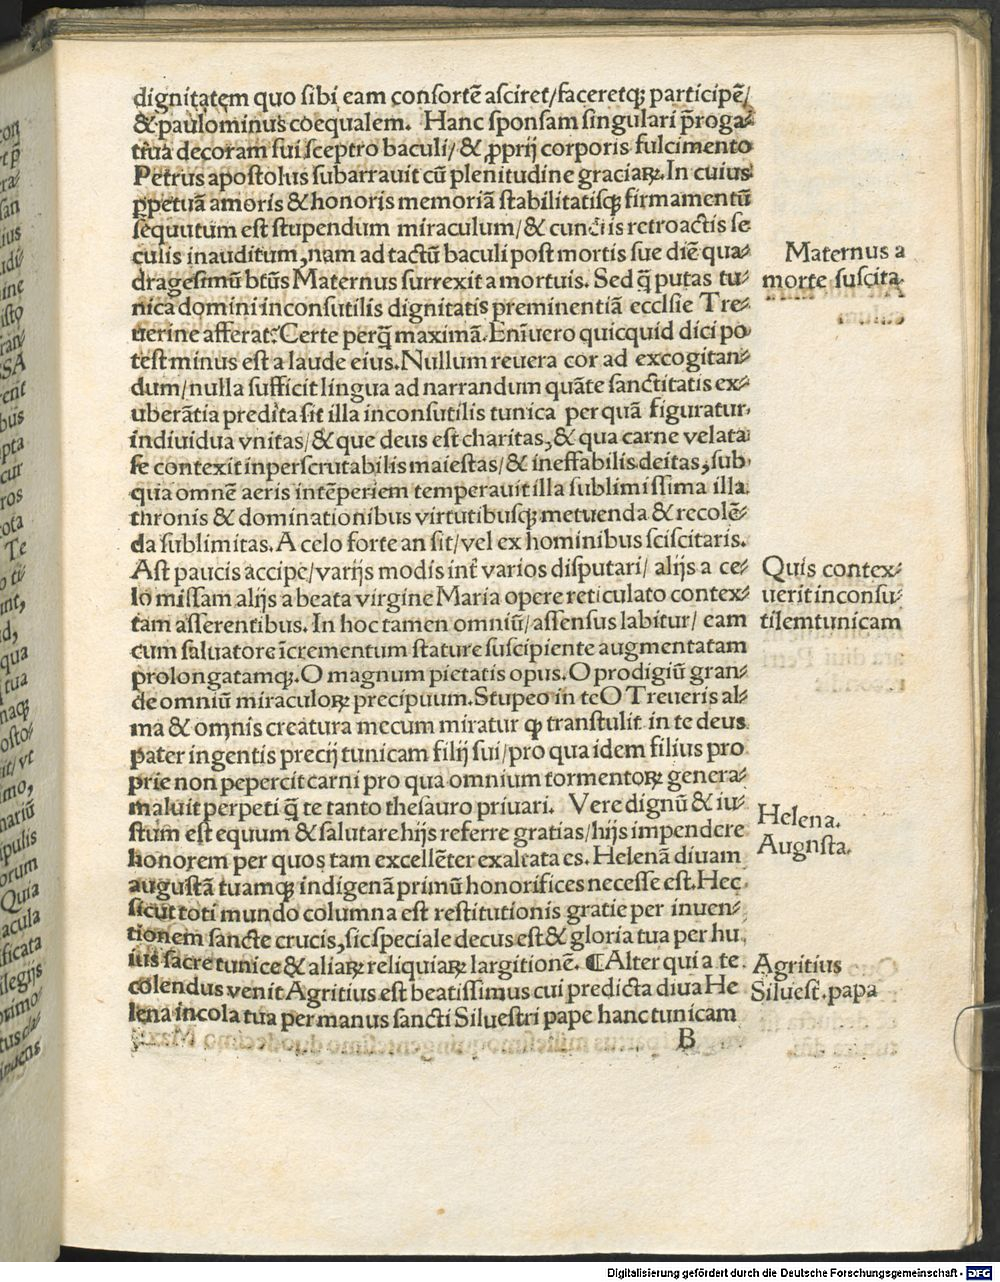 dignitatem quo ſibi eam conſortē aſciret/faceretq; participē/
& paulominus coequalem. Hanc ſponſam ſingulari p̄roga⸗
tiua decoram ſui ſceptro baculi/& ꝓprij corporis fulcimento
Petrus apoſtolus ſubarrauit cū plenitudine graciaꝝ. In cuius
ꝑpetuā amoris & honoris memoriā ſtabilitatiſq; firmamentū
ſequutum eſt ſtupendum miraculum/& cunctis retroactis ſe
culis inauditum, nam ad tactū baculi poſt mortis ſue diē qua⸗
drageſimū btūs Maternus ſurrexit a mortuis. Sed q̄ putas tu⸗
nica domini inconſutilis dignitatis preminentiā eccłſie Tre⸗
uerine afferat? Certe perq̄ maximā. Enīuero quicquid dici po
teſt minus eſt a laude eius. Nullum reuera cor ad excogitan⸗
dum/nulla ſufficit lingua ad narrandum quāte ſanctitatis ex⸗
uberātia predita ſit illa inconſutilis tunica per quā figuratur
indiuidua vnitas/& que deus eſt charitas, & qua carne velata
ſe contexit inperſcrutabilis maieſtas/& ineffabilis deitas, ſub
qua omnē aeris intēperiem temperauit illa ſublimiſſima illa
thronis & dominationibus virtutibuſq; metuenda & recolē⸗
da ſublimitas. A celo forte an ſit/vel ex hominibus ſciſcitaris.
Aſt paucis accipe/varijs modis inť varios diſputari/ alijs a ce⸗
lo miſſam alijs a beata virgine Maria opere reticulato contex⸗
tam aſſerentibus. In hoc tamen omniū/aſſenſus labitur/ eam
cum ſaluatore īcrementum ſtature ſuſcipiente augmentatam
prolongatamq;. O magnum pietatis opus. O prodigiū gran⸗
de omniū miraculoꝝ precipuum. Stupeo in te O Treueris al⸗
ma & omnis creatura mecum miratur ꝙ tranſtulit in te deus
pater ingentis precij tunicam filij ſui/pro qua idem filius pro
prie non pepercit carni pro qua omnium tormentoꝝ genera⸗
maluit perpeti q̄ te tanto theſauro priuari. Vere dignū & iu⸗
ſtum eſt equum & ſalutare hijs referre gratias/hijs impendere
honorem per quos tam excellēter exaltata es. Helenā diuam
auguſtā tuamq; indigenā primū honorifices neceſſe eſt. Hec
ſicut toti mundo columna eſt reſtitutionis gratie per inuen⸗
tionem ſancte crucis, ſic ſpeciale decus eſt & gloria tua per hu
ius ſacre tunice & aliaꝝ reliquiaꝝ largitionē. ¶ Alter qui a te
colendus venit Agritius eſt beatiſſimus cui predicta diua He
lena incola tua per manus ſancti Silueſtri pape hanc tunicam
B
Maternus a
morte ſuſcita.
Quis contex⸗
uerit inconſu⸗
tilem tunicam
Helena.
Augnſta.
Agritius
Silueſt. papa
Digitalisierung gefördert durch die Deutsche Forschungsgemeinschaft - DFG